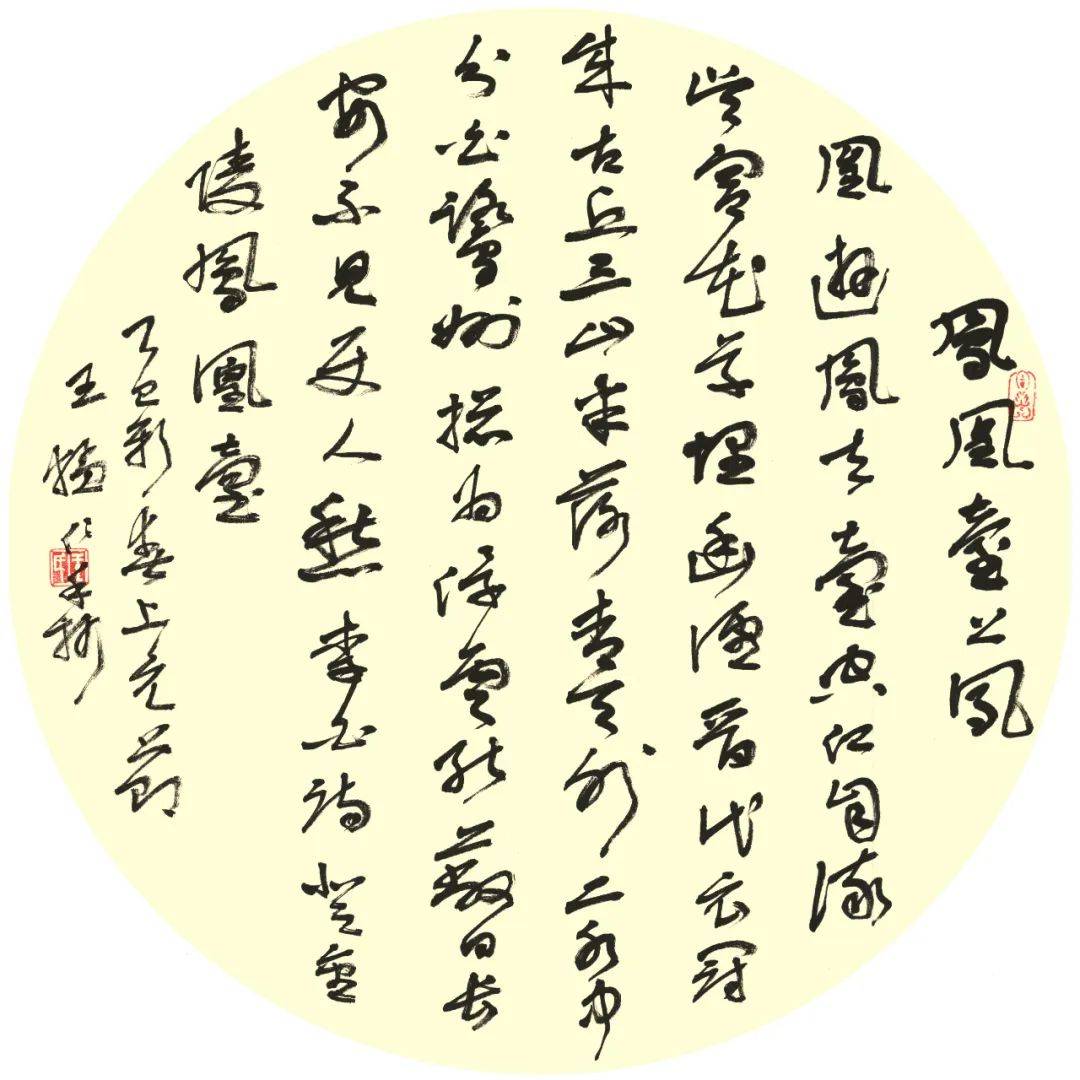 鳳凰臺上鳳
凰遊鳳去臺空江自流
吴宫花草埋幽徑晉代衣冠
成古丘三山半落青天外二水中
分白鷺洲總為浮雲能蔽日長
安不見使人愁李白詩登金
陵鳳凰臺
乙巳新春上元節
王